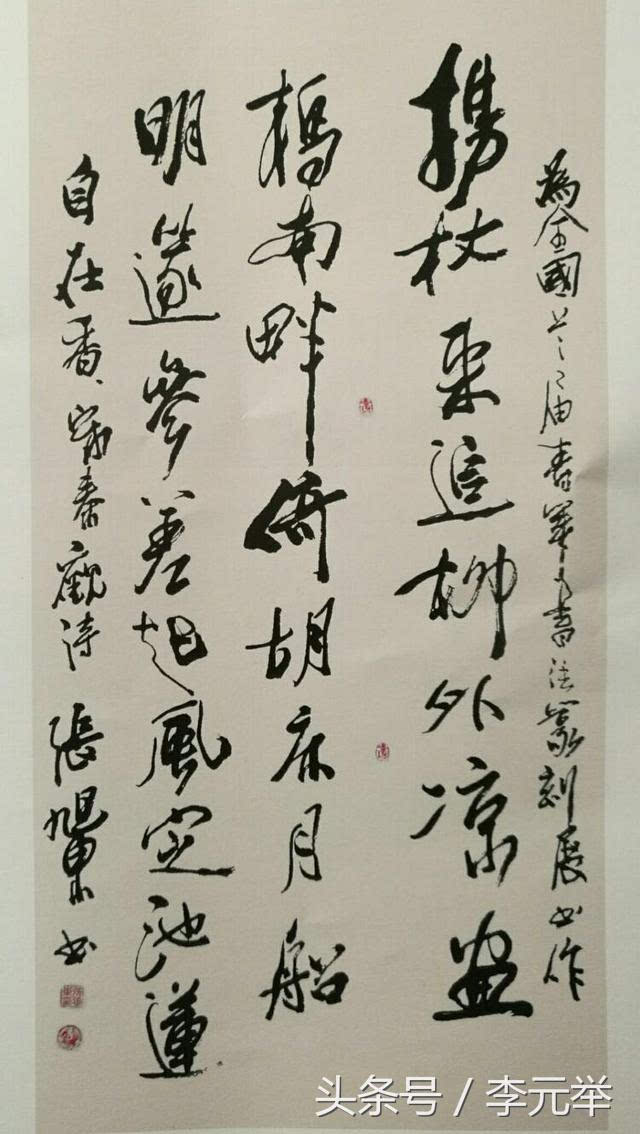 為全國届書法篆刻展作
携杖来追柳外凉画
橋南畔倚胡床月船
明篴參差起風定池蓮
自在香、宋秦觀詩 張旭東书
头条号 / 李元举